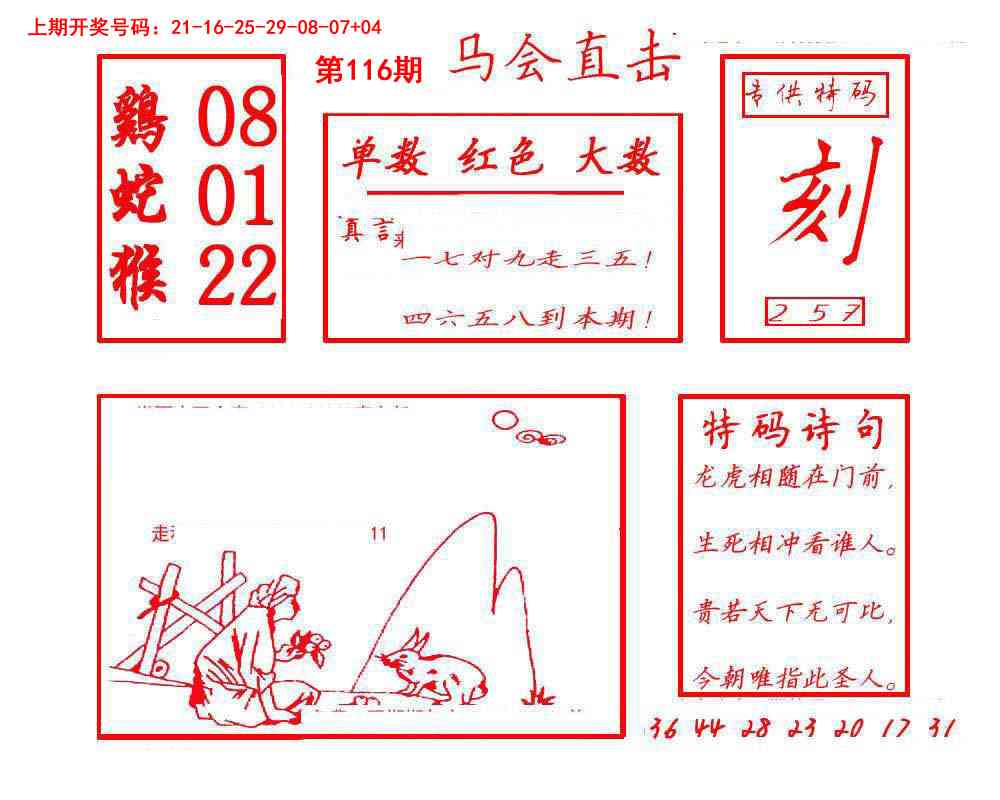 上期开奖号码：21-16-25-29-08-07+04
第116期 马会直击
鷄 08
蛇 01
猴 22
单数 红色 大数
真言
一七对九走三五!
四六五八到本期!
供特码
刻
2 5 7
走
11
特码诗句
龙虎相随在门前,
生死相冲看谁人。
贵若天下无可比,
今朝唯指此圣人。
36 44 28 23 20 17 31